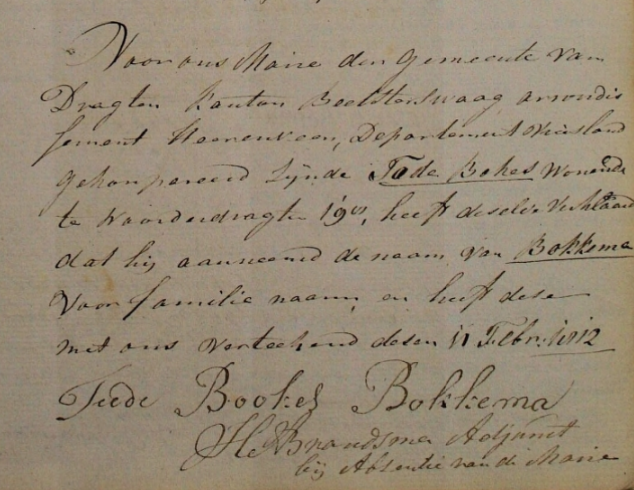 Voor ons Maire der Gemeente van
Dragten kanton Beetsterswaag, arrondis
sement Heerenveen, Departement Vriesland
gekompareerd zijnde Tede Bokes Wonende
te Noorderdragten heeft deselve Verklaard
dat hij aanneemd de naam van Bokkema
Voor familie naam, en heeft dese
met ons verteekend desen 11 Febr: 1812
Teede Bookes Bokkema
Brandsma Adjunct
bij Absentie van de Maire